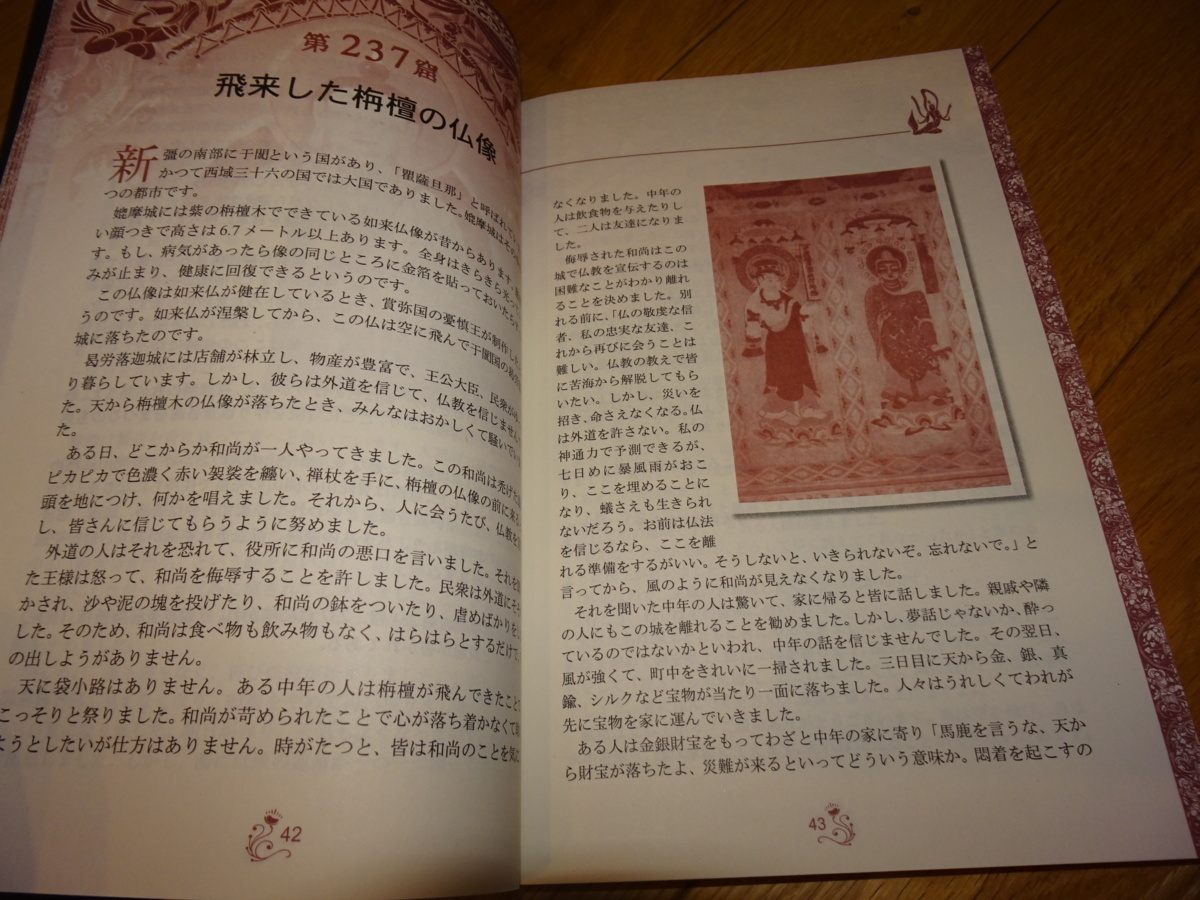 第237窟
飛来した栴檀の仏像
新疆の南部に于闐という国があり、「瞿薩旦那」と呼ばれ
かつて西域三十六の国では大国でありました。媲摩城はその
つの都市です。
媲摩城には紫の栴檀木でできている如来仏像が昔からあります。
い顔つきで高さは6.7メートル以上あります。全身はきらきら光っ
す。もし、病気があったら像の同じところに金箔を貼っておいたら
みが止まり、健康に回復できるというのです。
この仏像は如来仏が健在しているとき、賞弥国の憂慎王が制作した
うのです。如来仏が涅槃してから、この仏は空に飛んで于闐国の
城に落ちたのです。
曷労落迦城には店舗が林立し、物産が豊富で、王公大臣、民衆が
り暮らしています。しかし、彼らは外道を信じて、仏教を信じません
た。天から栴檀木の仏像が落ちたとき、みんなはおかしくて騒いでい
た。
ある日、どこからか和尚が一人やってきました。この和尚は禿げた
ピカピカで色濃く赤い袈裟を纏い、禅杖を手に、栴檀の仏像の前に来
頭を地につけ、何かを唱えました。それから、人に会うたび、仏教を
し、皆さんに信じてもらうように努めました。
外道の人はそれを恐れて、役所に和尚の悪口を言いました。それを
た王様は怒って、和尚を侮辱することを許しました。民衆は外道にそそ
かされ、沙や泥の塊を投げたり、和尚の鉢をついたり、虐めばかりを
した。そのため、和尚は食べ物も飲み物もなく、はらはらとするだけで、
の出しようがありません。
天に袋小路はありません。ある中年の人は栴檀が飛んできたこと
こっそりと祭りました。和尚が苛められたことで心が落ち着かなくて
ようとしたいが仕方はありません。時がたつと、皆は和尚のことを気に
42
なくなりました。中年の
人は飲食物を与えたりし
て、二人は友達になりま
した。
侮辱された和尚はこの
城で仏教を宣伝するのは
困難なことがわかり離れ
ることを決めました。別
れる前に、「仏の敬虔な信
者、私の忠実な友達、こ
れから再びに会うことは
難しい。仏教の教えで皆
に苦海から解脱してもら
いたい。しかし、災いを
招き、命さえなくなる。仏
は外道を許さない。私の
神通力で予測できるが、
七日めに暴風雨がおこ
り、ここを埋めることに
なり、蟻さえも生きられ
ないだろう。お前は仏法
を信じるなら、ここを離
れる準備をするがいい。そうしないと、いきられないぞ。忘れないで。」と
言ってから、風のように和尚が見えなくなりました。
それを聞いた中年の人は驚いて、家に帰ると皆に話しました。親戚や隣
の人にもこの城を離れることを勧めました。しかし、夢話じゃないか、酔っ
ているのではないかといわれ、中年の話を信じませんでした。その翌日、
風が強くて、町中をきれいに一掃されました。三日目に天から金、銀、真
鍮、シルクなど宝物が当たり一面に落ちました。人々はうれしくてわれが
先に宝物を家に運んでいきました。
ある人は金銀財宝をもってわざと中年の家に寄り「馬鹿を言うな、天か
ら財宝が落ちたよ、災難が来るといってどういう意味か。悶着を起こすの
43